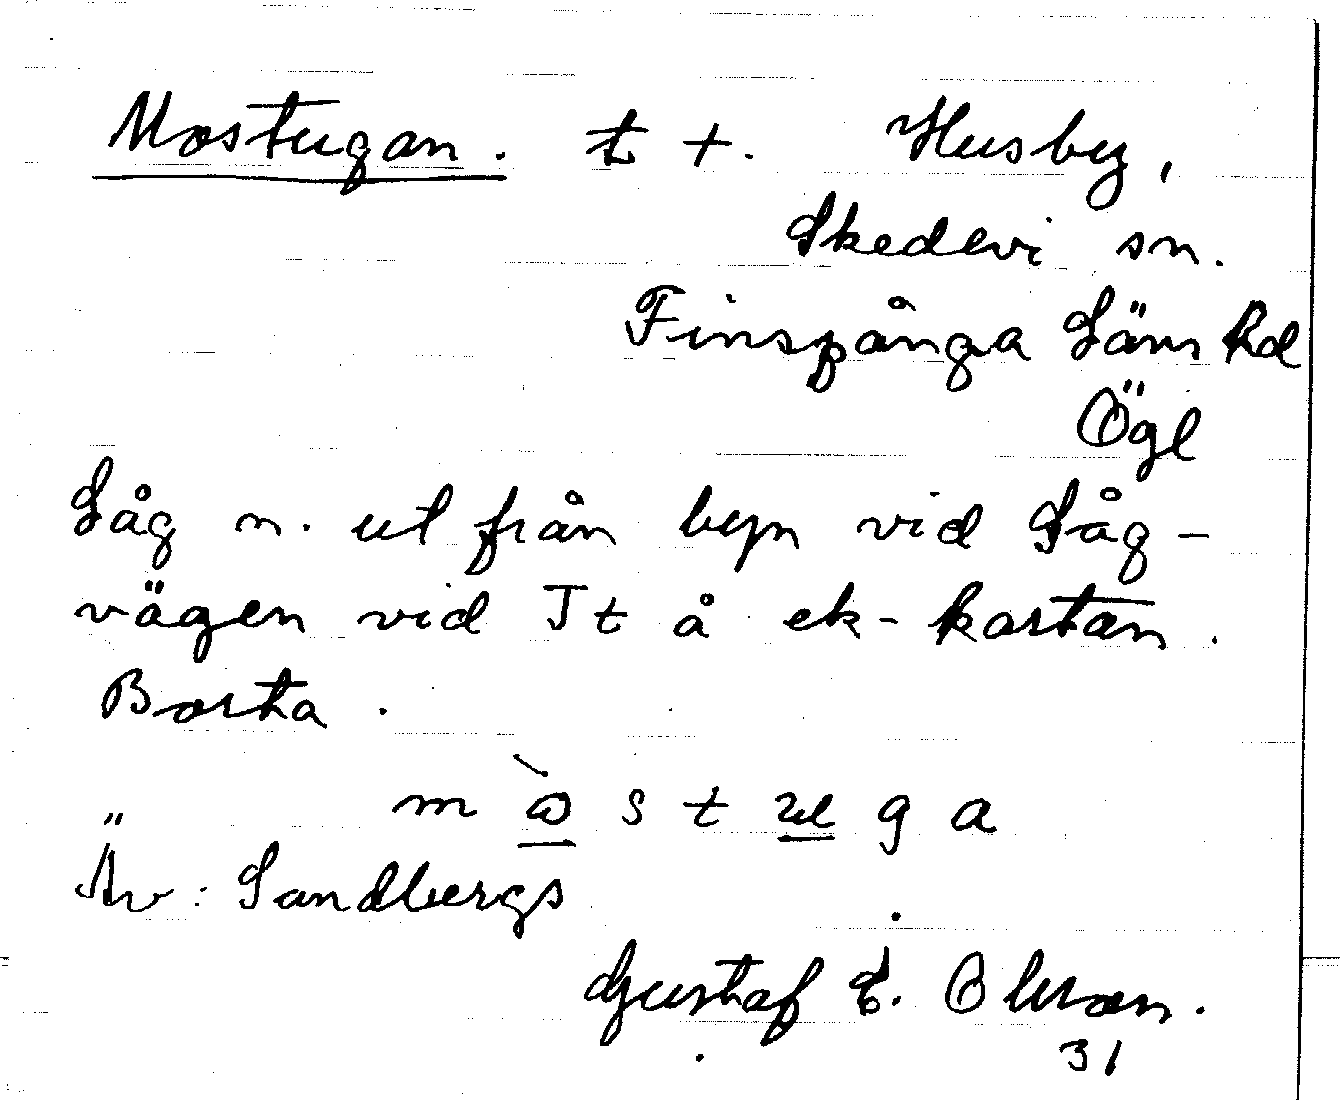 Mostugan. t +. Husby,
Skedevi sn.
Finspånga Läns hd
Ögl
Låg n. ut från byn vid Såg-
vägen vid Jt å ek-kartan.
Borta.
m s t u g a
Äv: Sandbergs
Gustaf E. Olsson.
31